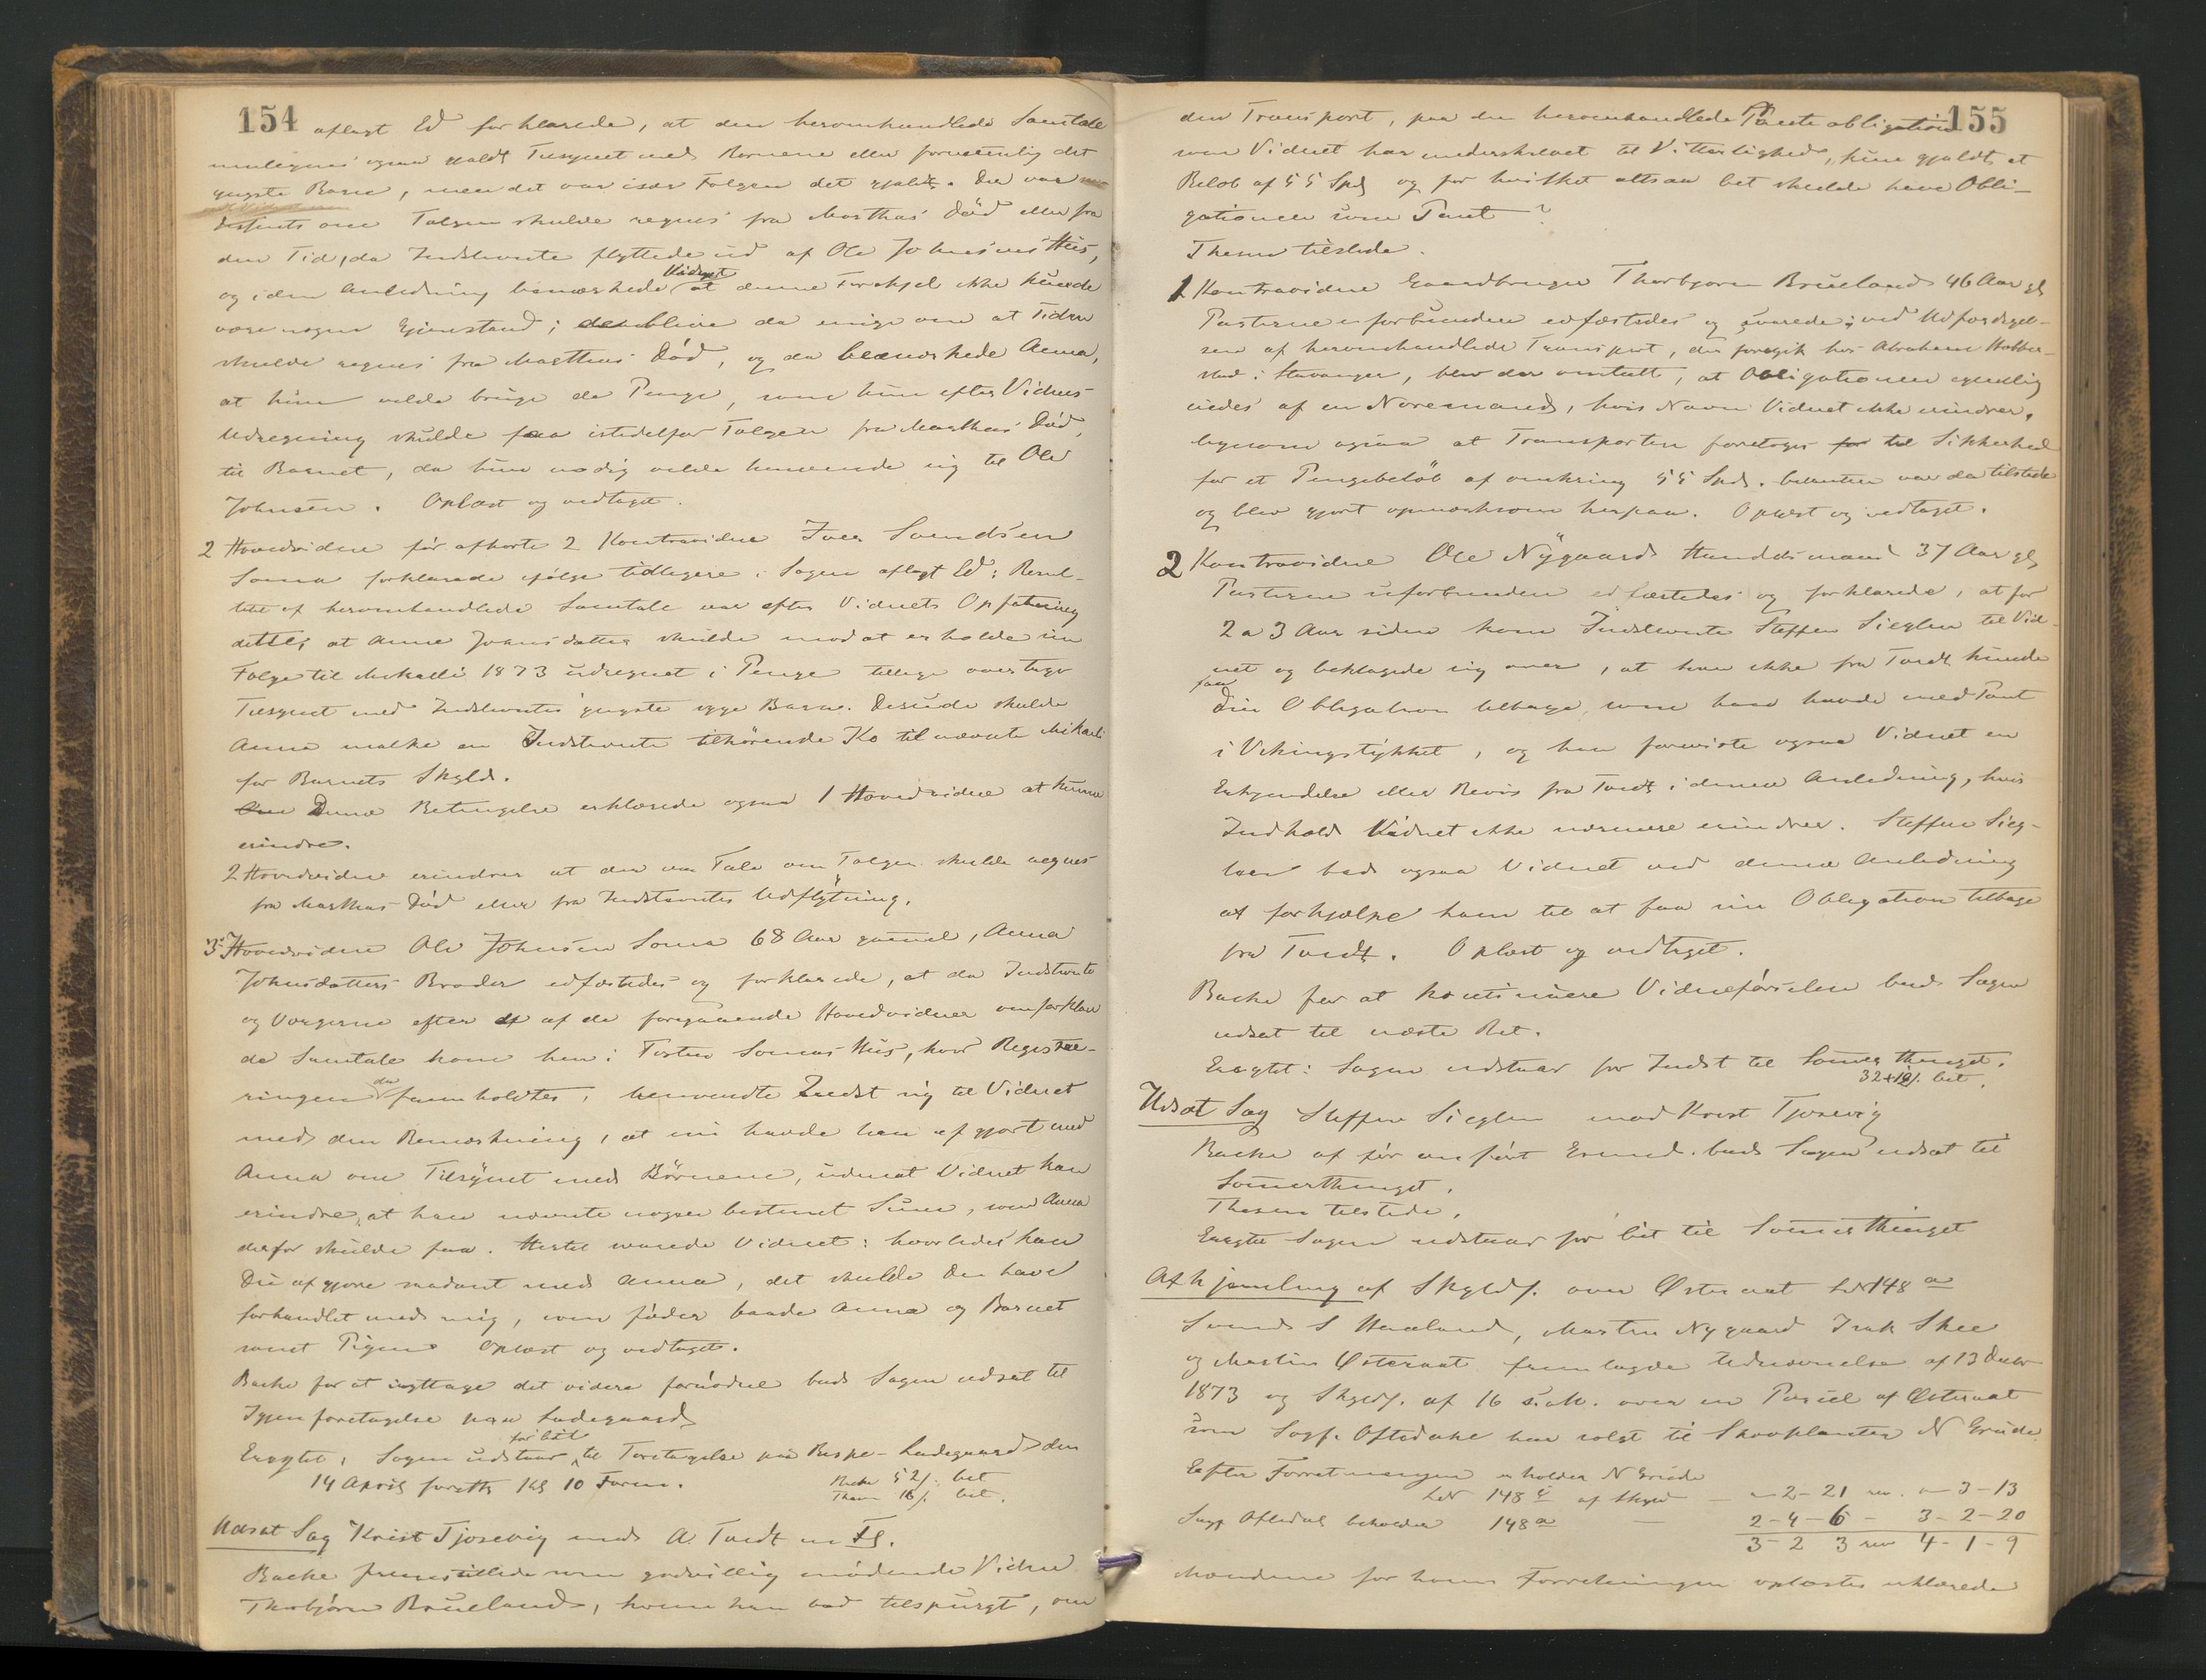 154
aflagt Ed forklarede, at den heromhandlede Samtale
muligens ogsaa gjaldt Tilsynet med Børnene eller fornemmelig det
yngste Barn, men det var især Følgen det gjaldt. Der var
Disputs om Følgen skulde regnes fra Marthas Død eller fra
den Tid, da Indstevnte flyttede ud af Ole Johnsens Hus,
og i den Anledning bemærkede Vidnet at denne Forskjel ikke kunde
være nogen Gjenstand; de bleve da enige om at Tiden
skulde regnes fra Marthas Død, og da bemærkede Anna,
at hun vilde bruge de Penge, som hun efter Vidnets
Udregning skulde faa istedetfor Følgen fra Marthas Død,
til Barnet, da hun nødig vilde henvende sig til Ole
Johnsen. Oplæst og vedtaget.
2 Hovedvidne før afhørte 2 Kontravidne Iver Svendsen
Soma forklarede ifølge tidligere i Sagen aflagt Ed: Resul-
tatet af heromhandlede Samtale var efter Vidnets Opfatning
dette, at Anne Johnsdatter skulde mod at erholde sin
Følge til Mikaeli 1873 udregnet i Penge tillige overtage
Tilsynet med Indstevntes yngste syge Barn. Desuden skulde
Anna malke en Indstevnte tilhørende Ko til nævnte Mikaeli
for Barnets Skyld.
Denne Betingelse erklærede ogsaa 1 Hovedvidne at kunne
erindre.
2 Hovedvidne erindrer at der var Tale om Følgen skulde regnes
fra Marthas Død eller fra Indstevntes Udflytning.
3 Hovedvidne Ole Johnsen Soma 68 Aar gammel, Anna
Johnsdatters Broder edfæstedes og forklarede, at da Indstevnte
og Vorgerne efter af de foregaaende Hovedvidner omforklare
de Samtale kom hen i Torsten Somas Hus, hvor Registre-
ringen da fremholdtes, henvendte Indst sig til Vidnet
med den Bemærkning, at nu havde han afgjort med
Anna om Tilsynet med Børnene, uden at Vidnet kan
erindre, at han nævnte nogen bestemt Sum, som Anna
derfor skulde faa. Hertil svarede Vidnet: hvorledes kan
Du afgjøre saadant med Anna, det skulde Du have
forhandlet med mig, som føder baade Anna og Barnet
samt Pigen. Oplæst og vedtaget.
Backe for at iagttage det videre fornødne bad Sagen udsat til
Igjenforetagelse paa Ladegaard
Eragtet: Sagen udstaar for bit til Foretagelse paa Bispe-Ladegaard den
14 April førstk Kl 10 Form.
Backe 52 ẞ. bet
Them 16 ẞ. bet.
Udsat Sag Krist Tjosevig mod A. Tvedt m Fl.
Backe fremstillede som godvillig mødende Vidne
Thorbjørn Brueland, hvem han bad tilspurgt, om
155
den Transport, paa den heromhandlede Panteobligation
som Vidnet har underskrevet til Vitterlighed, kun gjaldt et
Beløb af 55 Spd og for hvilket altsaa bet skulde have Obli-
gationen som Pant?
Themu tilstede.
1 Kontravidne Gaardbruger Thorbjørn Brueland 46 Aar gl
Parterne uforbunden edfæstedes og svarede: ved Udfærdigel-
sen af heromhandlede Transport, der foregik hos Abraham Hobber-
stad i Stavanger, blev der omtalt, at Obligationen egentlig
eiedes af en Nordmand, hvis Navn Vidnet ikke erindrer,
ligesom ogsaa at Transporten foretoges for til Sikkerhed
for et Pengebeløb af omkring 55 Spd. var da tilstede
og blev gjort opmærksom herpaa. Oplæst og vedtaget.
2 Kontravidne Ole Nygaard Handelsmand 37 Aar gl
Parterne uforbunden edfæstedes og forklarede, at for
2 a 3 Aar siden kom Indstevnte Steffen Sieglen til Vid-
net og beklagede sig over, at han ikke fra Tvedt kunde
faa Din Obligation tilbage, som han havde med Pant
i Vikingstykket, og han foreviste ogsaa Vidnet en
Erkjendelse eller Bevis fra Tvedt i denne Anledning, hvis
Indhold Vidnet ikke nærmere erindrer. Steffen Sieg-
len bad ogsaa Vidnet ved denne Anledning
at forhjælpe ham til at faa sin Obligation tilbage
fra Tvedt. Oplæst og vedtaget.
Backe for at kontinuere Vidneførselen bad Sagen
udsat til næste Ret.
Eragtet: Sagen udstaar for Indst til Somerthinget.
32+16 ẞ. bet.
Udsat Sag Steffen Sieglen mod Krist Tjosevig
Backe af før anført Grund bad Sagen udsat til
Somerthinget.
Themu tilstede.
Eragtet Sagen udstaar for bit til Somerthinget
Afhjemling af Skyldf. over Østeraat LN 148 a
Svend S Haaland, Martin Nygaard Isak Skee
og Martin Østeraat fremlagde Udnævnelse af 13 Decbr
1873 og Skyldf. af 16 s.M. over en Parcel af Østeraat
som Sogf. Oftedahl har solgt til Skovplanter N Grude
Efter Forretningen erholder N Grude
LN 148 c af Skyld — " - 2 - 21 rev. " - 3 - 13
Sogf Oftedahl beholder 148 a — 2 - 4 - 6 - 3 - 2 - 20
3 - 2 3 rev 4 - 1 - 9
Mændene for hvem Forretningen oplæstes erklærede